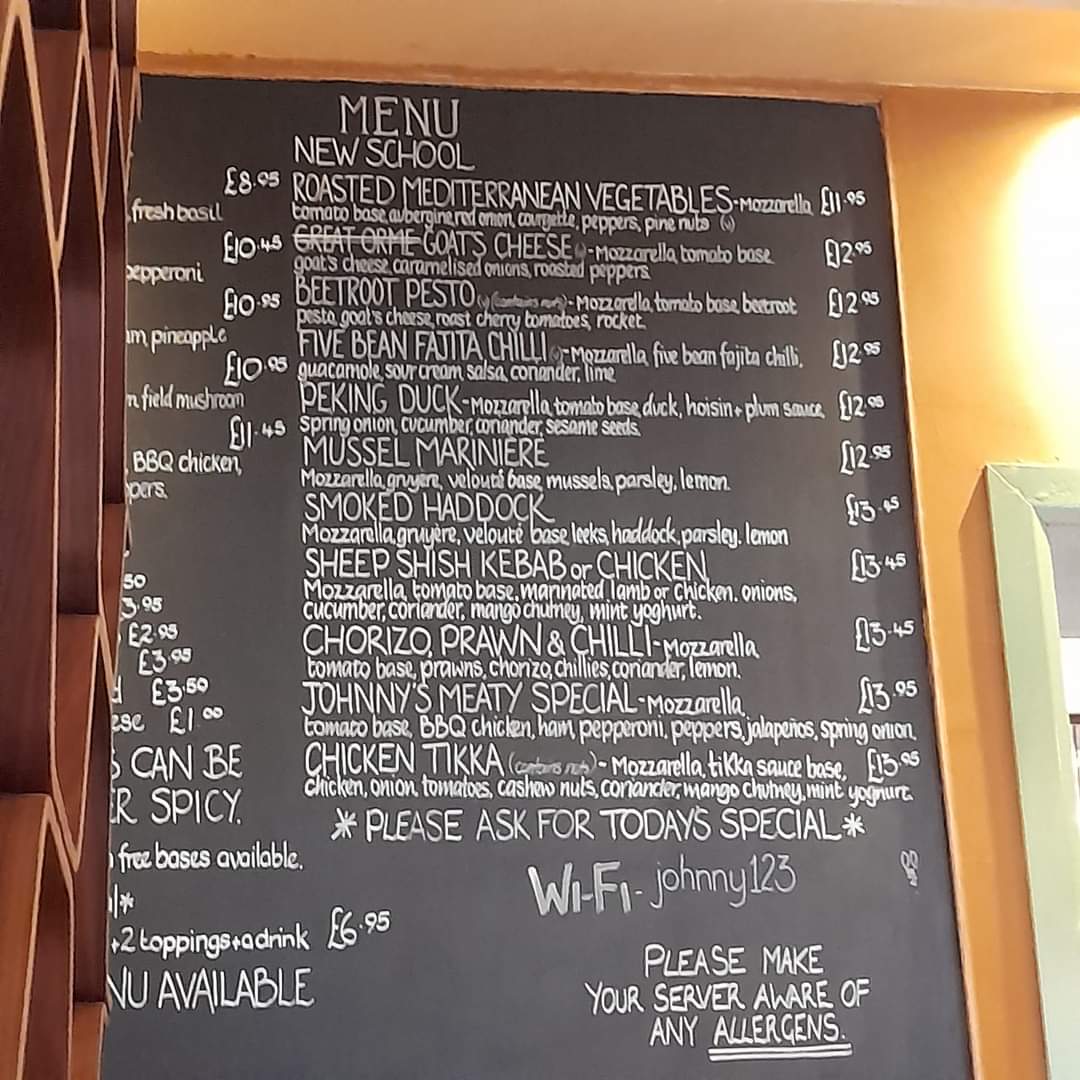 £8.95
fresh basil
£10.45
pepperoni
£10.95
pineapple
£10.95
field mushroom
£11.45
BBQ chicken,
50
3.95
£2.95
£3.95
£3.50
£1.00
CAN BE
SPICY.
free bases available.
+2 toppings+a drink £6.95
AVAILABLE
MENU
NEW SCHOOL
ROASTED MEDITERRANEAN VEGETABLES-Mozzarella, £11.95
tomato base, aubergine, red onion, courgette, peppers, pine nuts (v)
GREAT ORME GOAT'S CHEESE (v)-Mozzarella, tomato base £12.95
goat's cheese, caramelised onions, roasted peppers.
BEETROOT PESTO (v)(contains nuts)-Mozzarella, tomato base, beetroot £12.95
pesto, goat's cheese, roast cherry tomatoes, rocket.
FIVE BEAN FAJITA CHILLI (v)-Mozzarella, five bean fajita chilli, £12.95
guacamole, sour cream, salsa, coriander, lime
PEKING DUCK-Mozzarella, tomato base, duck, hoisin + plum sauce, £12.95
Spring onion, cucumber, coriander, sesame seeds.
MUSSEL MARINIÈRE £12.95
Mozzarella, gruyere, velouté base, mussels, parsley, lemon.
SMOKED HADDOCK £13.45
Mozzarella, gruyère, velouté base, leeks, haddock, parsley. lemon
SHEEP SHISH KEBAB or CHICKEN £13.45
Mozzarella, tomato base, marinated lamb or Chicken. onions,
cucumber, coriander, mango chutney, mint yoghurt.
CHORIZO, PRAWN & CHILLI-Mozzarella £13.45
tomato base, prawns, chorizo, chillies, coriander, lemon.
JOHNNY'S MEATY SPECIAL-Mozzarella, £13.95
tomato base, BBQ chicken, ham, pepperoni, peppers, jalapeños, spring onion.
CHICKEN TIKKA (contains nuts)- Mozzarella, tikka sauce base, £13.95
chicken, onion, tomatoes, cashew nuts, coriander, mango chutney, mint yoghurt.
*PLEASE ASK FOR TODAY'S SPECIAL*
WI-FI- johnny123
PLEASE MAKE
YOUR SERVER AWARE OF
ANY ALLERGENS.